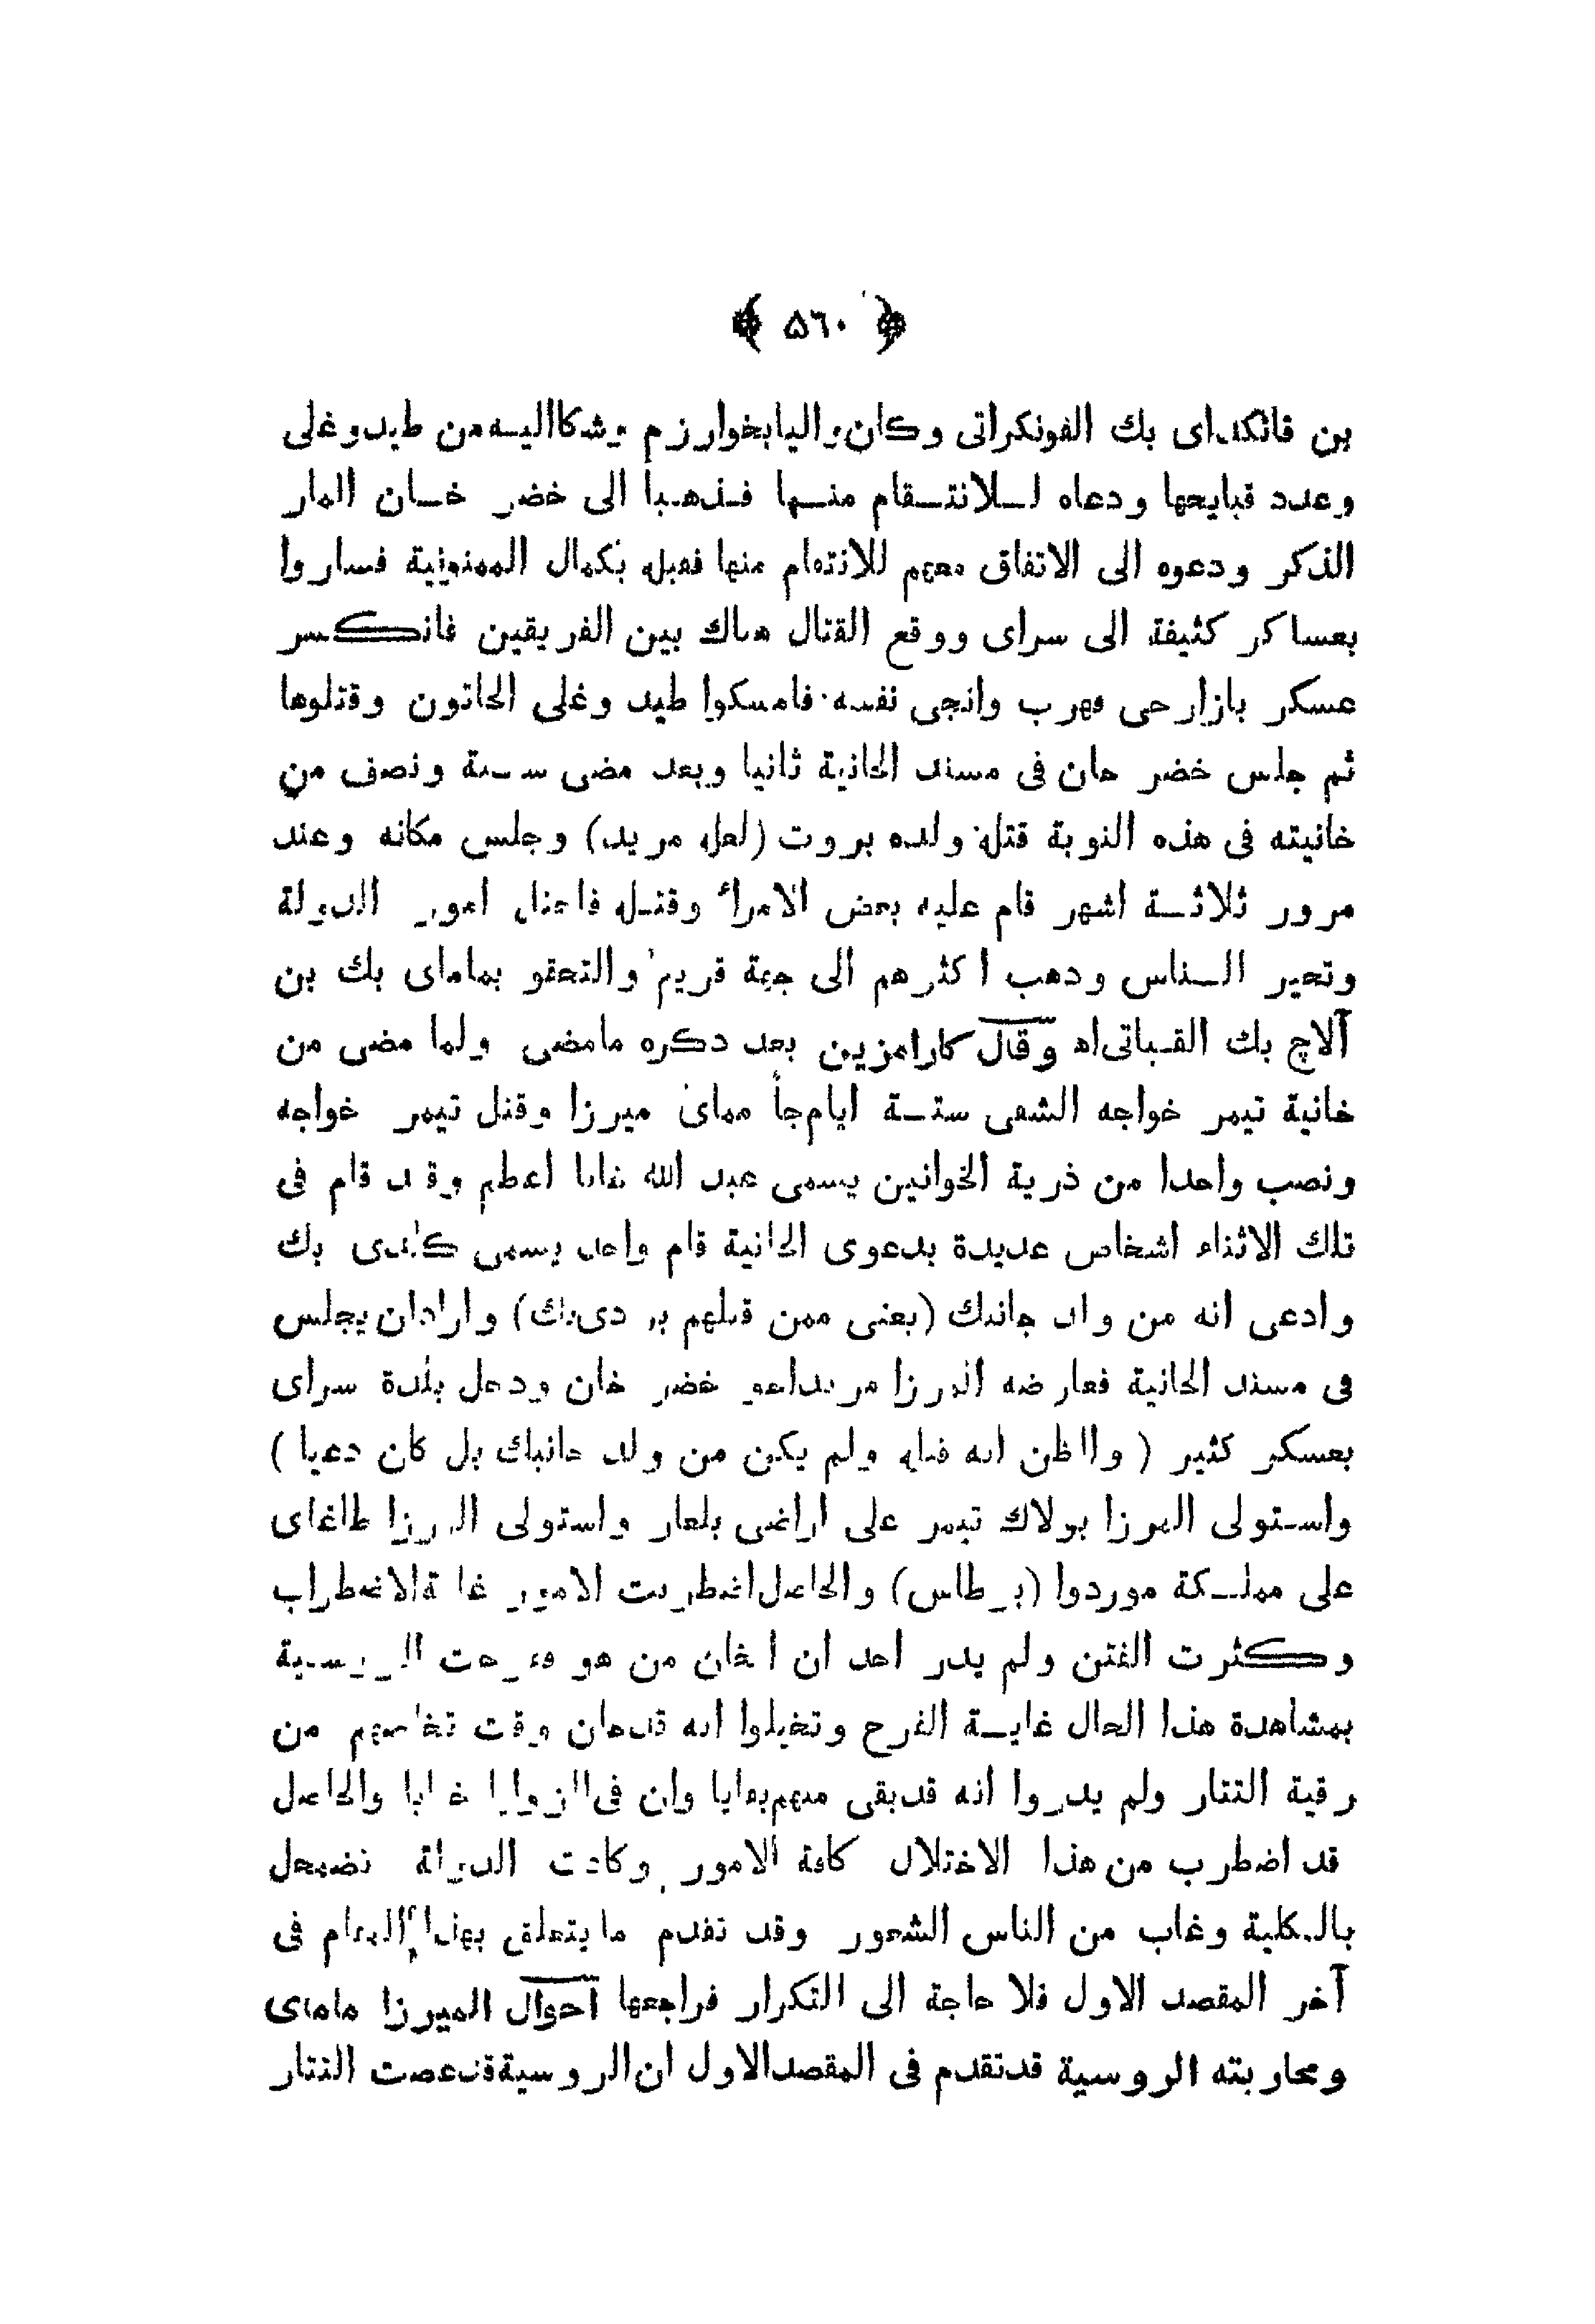 ﴿ ٥٦٠ ﴾
بن قانكداى بك القونكراتى وكان واليا بخوارزم وشكا اليه من طيدوغلى
وعدد قبايحها ودعاه للانتقام منها فذهبا الى خضر خان المار
الذكر ودعوه الى الاتفاق معهم للانتقام منها فقبله بكمال الممنونية فساروا
بعساكر كثيفة الى سراى ووقع القتال هناك بين الفريقين فانكسر
عسكر بازارجى فهرب وانجى نفسه فامسكوا طيدوغلى الخاتون وقتلوها
ثم جلس خضر خان فى مسند الخانية ثانيا وبعد مضى سنة ونصف من
خانيته فى هذه النوبة قتله ولده بروت (لعله مريد) وجلس مكانه وعند
مرور ثلاثة اشهر قام عليه بعض الامراء وقتله فاختل امور الدولة
وتحير الناس وذهب اكثرهم الى جهة قريم والتحقو بماماى بك بن
آلاچ بك القباتى اه وقال كارامزين بعد ذكره مامضى ولما مضى من
خانية تيمر خواجه الشقى ستة ايام جأ مماى ميرزا وقتل تيمر خواجه
ونصب واحدا من ذرية الخوانين يسمى عبد الله خانا اعظم وقد قام فى
تلك الاثناء اشخاص عديدة بدعوى الخانية قام واحد يسمى كلدى بك
وادعى انه من ولد جانبك (يعنى ممن قتلهم بردى بك) واراد ان يجلس
فى مسند الخانية فعارضه الميرزا مريد اخو خضر خان ودخل بلدة سراى
بعسكر كثير ( والظن انه قتله ولم يكن من ولد جانبك بل كان دعيا )
واستولى الميرزا بولاك تيمر على اراضى بلغار واستولى الميرزا طاغاى
على مملكة موردوا (برطاس) والحاصل اضطربت الامور غاية الاضطراب
وكثرت الفتن ولم يدر احد ان الخان من هو وفرحت الروسية
بمشاهدة هذا الحال غاية الفرح وتخيلوا انه قد حان وقت تخلصهم من
رقية التتار ولم يدروا انه قد بقى منهم بقايا وان فى الزوايا خبايا والحاصل
قد اضطرب من هذا الاختلال كافة الامور وكادت الدولة تضمحل
بالكلية وغاب من الناس الشعور وقد تقدم ما يتعلق بهذا المقام فى
آخر المقصد الاول فلا حاجة الى التكرار فراجعها احوال الميرزا ماماى
ومحاربته الروسية قد تقدم فى المقصد الاول ان الروسية قد عصت التتار